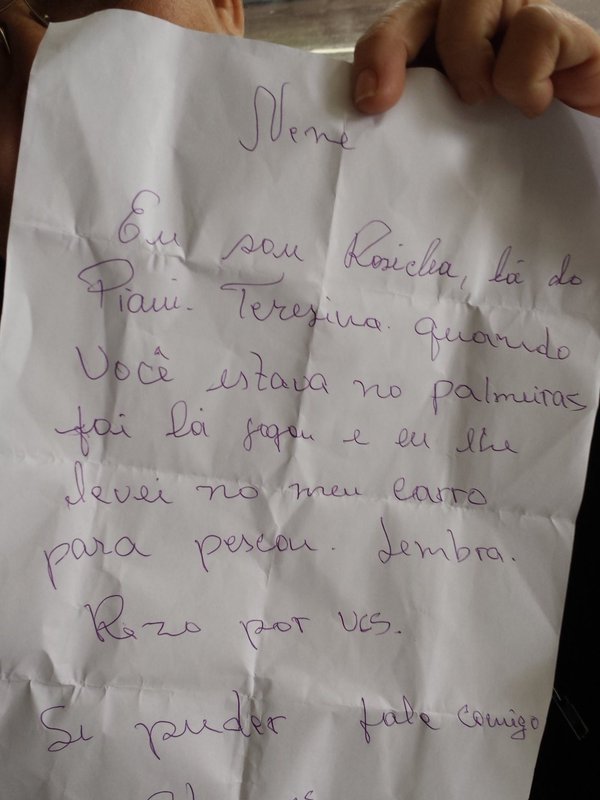 Nene
Eu sou Rosicléa, lá do
Piaui. Teresina. quando
Você estava no palmeiras
foi lá jogou e eu lhe
levei no meu carro
para pescar. Lembra.
Rezo por vcs.
Se puder fale comigo